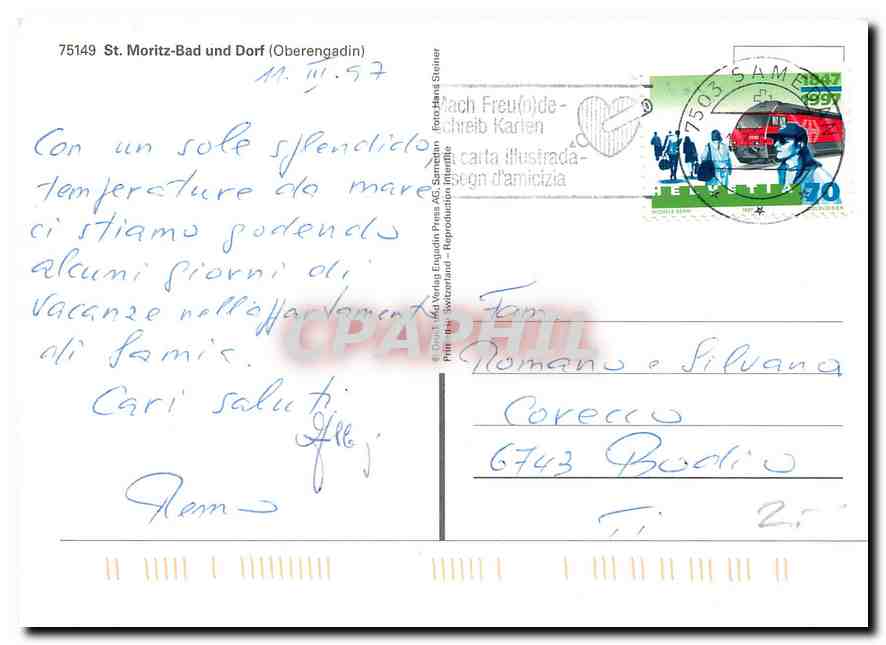 75149 St. Moritz-Bad und Dorf (Oberengadin)
11. III. 97
Con un sole splendido,
temperature da mare
ci stiamo godendo
alcuni giorni di
vacanze nell'appartamento
di Samia.
Cari saluti
Remo
© Druck und Verlag Engadin Press AG, Samedan Foto Hans Steiner
Printed in Switzerland – Reproduction interdite
Mach Freu(n)de-
schreib Karten
la carta illustrada-
segn d'amicizia
7503 SAMEDAN
1847
1997
HELVETIA 70
1997
Fam.
Romano e Silvana
Corecco
6743 Bodio
Ti
CPAPHIL